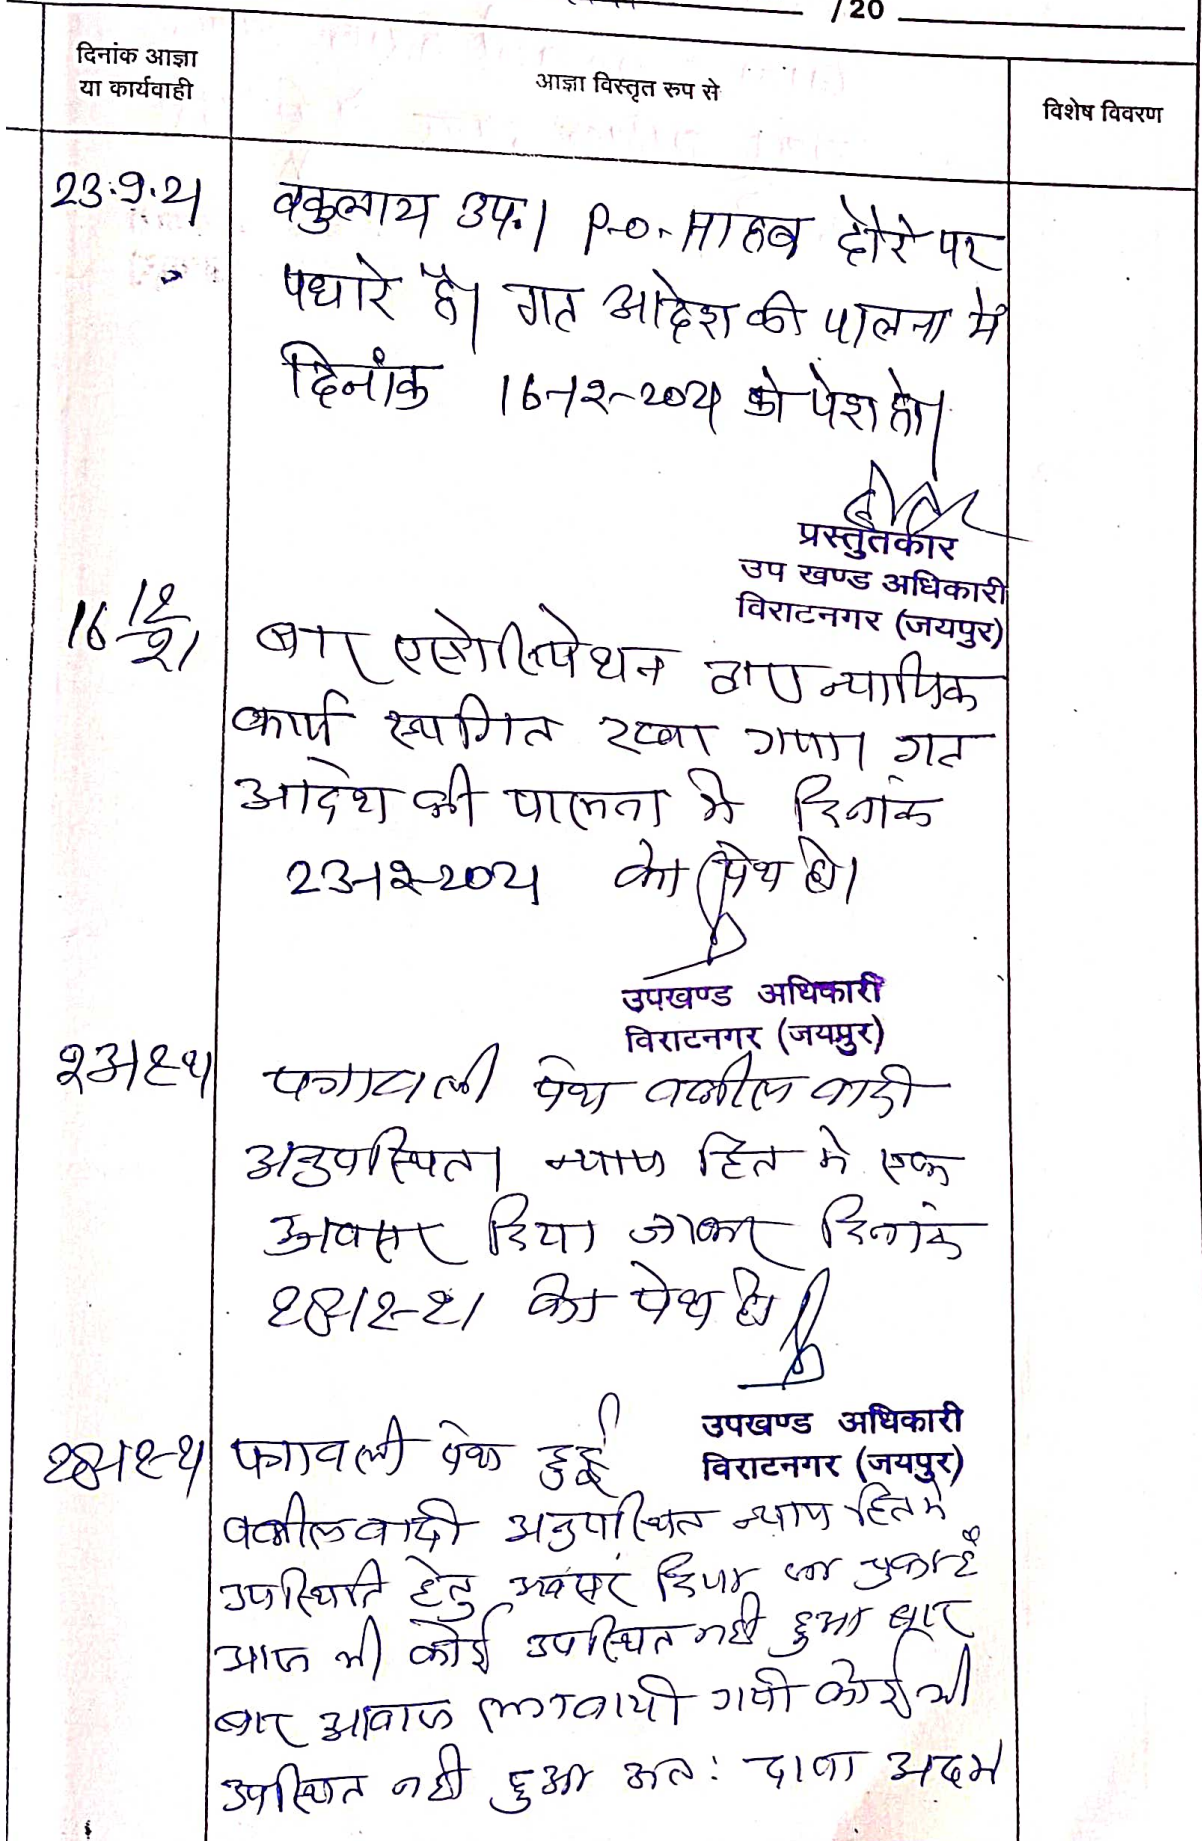 /20
दिनांक आज्ञा
या कार्यवाही
आज्ञा विस्तृत रुप से
विशेष विवरण
23.9.21
वकुलाय उप.। P.O. साहब दौरे पर
पधारे है। गत आदेश की पालना में
दिनांक 16-12-2021 को पेश हो।
प्रस्तुतकार
उप खण्ड अधिकारी
विराटनगर (जयपुर)
16 12/21
बार एसोसियेशन द्वारा न्यायिक
कार्य स्थगित रखा गया। गत
आदेश की पालना मे दिनांक
23-12-2021 को पेश हो।
उपखण्ड अधिकारी
विराटनगर (जयपुर)
23-12-21
पत्रावली पेश वकील वादी
अनुपस्थित। न्याय हित मे एक
अवसर दिया जाकर दिनांक
28-12-21 को पेश हो।
उपखण्ड अधिकारी
विराटनगर (जयपुर)
28-12-21
पत्रावली पेश हुई
वकील वादी अनुपस्थित न्याय हित मे
उपस्थिति हेतु अवसर दिया जा चुका है
आज भी कोई उपस्थित नही हुआ बार
बार आवाज लगवायी गयी कोई भी
उपस्थित नही हुआ अत: दावा अदम